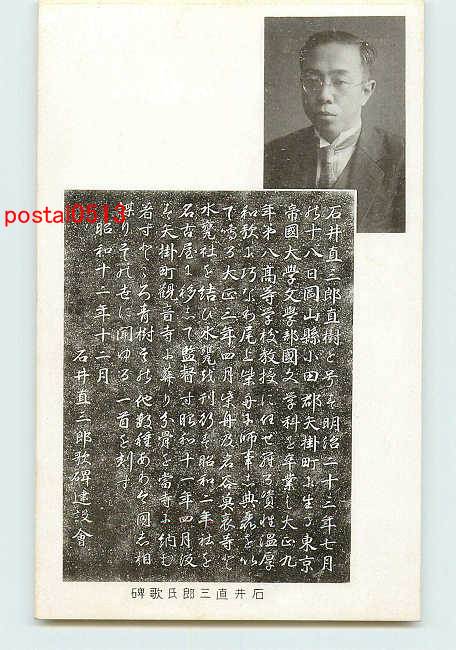 石井直三郎直樹と号す明治二十三年七月
十八日岡山縣小田郡矢掛町に生る東京
帝國大學文學部國文學科を卒業し大正九
年第八高等学校教授に任ぜ 資性温厚
和歌に巧 尾上柴舟に師事し典雅を以
て鳴る大正三年四月柴舟及岩谷莫哀等と
水甕社を結び水甕 刊行 昭和二年社を
名古屋に移 て監督す昭和十一年四月歿
矢掛町観音寺に葬り分骨を當寺に納む
著す 青樹 他数種あり 同志相
謀り 世に聞ゆる一首を刻す
昭和十二年十二月
石井直三郎歌碑建設會
碑歌氏郎三直井石
postal0513